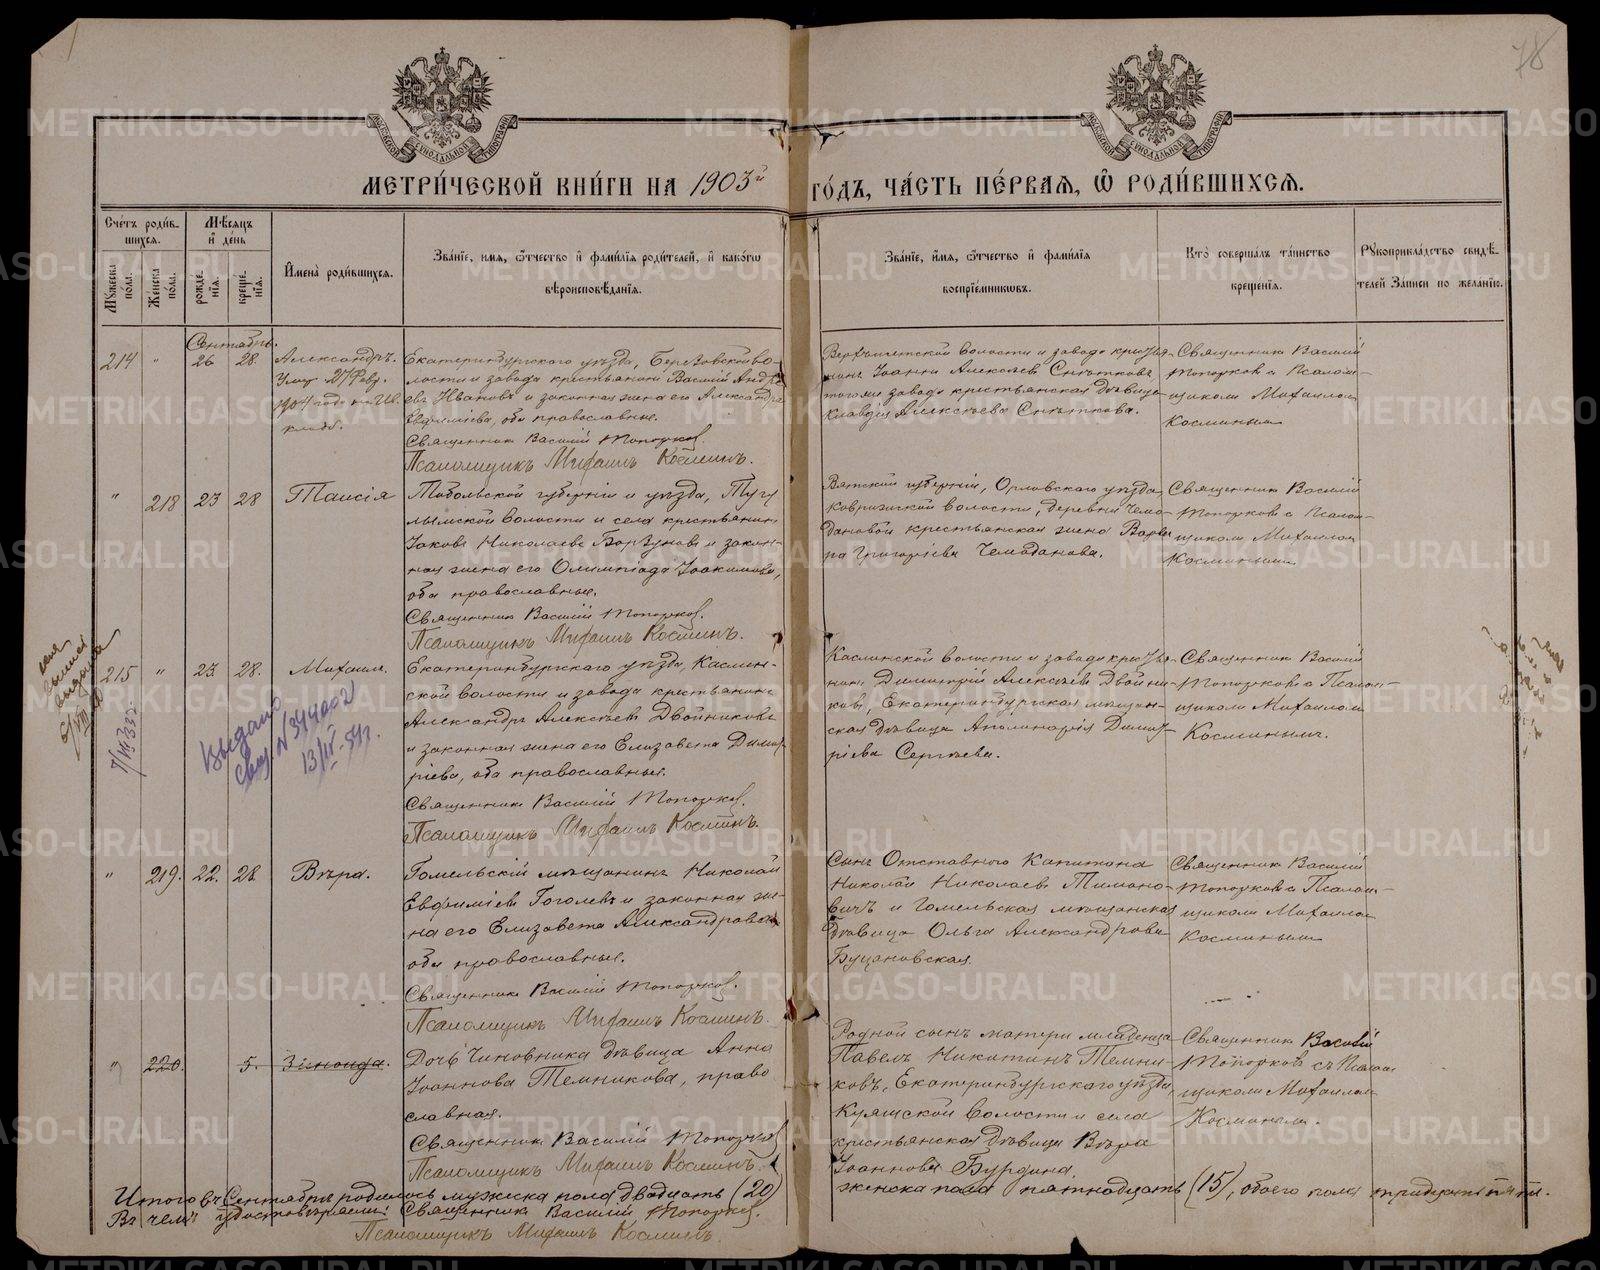 78
МОСКОВСКОЙ СѴНОДАЛЬНОЙ ТИПОГРАФІИ
МОСКОВСКОЙ СѴНОДАЛЬНОЙ ТИПОГРАФІИ
МЕТРИ́ЧЕСКОЙ КНИ́ГИ НА 1903й ГО́ДЪ, ЧА́СТЬ ПЕ́РВАЯ, Ѽ РОДИ́ВШИХСЯ.
Сче́тъ роди́в-
шихся.
Мѣ́сяцъ
и҆ де́нь
Му́жеска по́ла.
Же́нска по́ла.
рожде́нїя.
креще́нїя.
И҆мена̀ роди́вшихся.
Зва́нїе, имя, ѻ҆́тчество и҆ фами́лїѧ роди́телей, и҆ како́гѡ
вѣроисповѣ́данїя.
Зва́нїе, и҆́мя, ѻ҆́тчество и҆ фами́лїѧ
воспрїе́мникѡвъ.
Кто̀ соверша́лъ та́инство
креще́нїя.
Рꙋкоприкла́дство свидѣ́-
телей за́писи по жела́нїю.
Сентябрь.
214
"
26
28.
Александръ.
Умер 27 Февр.
1904 года на Ив.
кладб.
Екатеринбургскаго уѣзда, Березовской во-
лости и завода крестьянинъ Василій Андре-
евъ Ивановъ и законная жена его Александра
Евфиміева, оба православные.
Священникъ Василій Топорковъ.
Псаломщикъ Михаилъ Косминъ.
завода крестья-
нинъ Іоаннъ Алексѣевъ Снѣтковъ,
тогоже завода крестьянская дѣвица
Клавдія Алексѣева Снѣткова.
Священникъ Василій
Топорковъ с Псалом-
щикомъ Михаиломъ
Косминымъ
"
218
23
28
Таисія
Тобольской губерніи и уѣзда, Тугу-
лымской волости и села крестьянинъ
Іаковъ Николаевъ Борзуновъ и закон-
ная жена его Олимпіада Іоакимова,
оба православные.
Священникъ Василій Топорковъ.
Псаломщикъ Михаилъ Косминъ.
Вятской губерніи, Орловскаго уѣзда,
волости, деревни Чемо-
дановой крестьянская жена Варва-
ра Григоріева Чемоданова.
Священникъ Василій
Топорковъ с Псалом-
щикомъ Михаиломъ
Косминымъ
215
"
25
28.
Михаилъ.
Екатеринбургскаго уѣзда, Каслин-
ской волости и завода крестьянинъ
Александръ Алексѣевъ Двойниковъ
и законная жена его Елизавета Димит-
ріева, оба православные.
Священникъ Василій Топорковъ.
Псаломщикъ Михаилъ Косминъ.
Каслинской волости и завода крестья-
нинъ Димитрій Алексѣевъ Двойни-
ковъ, Екатеринбургская мѣщан-
ская дѣвица Аполинарія Димит-
ріева Сергѣева.
Священникъ Василій
Топорковъ с Псалом-
щикомъ Михаиломъ
Косминымъ.
Выдано
свид. № 344002
13/IV-51г.
"
219.
22.
28
Вѣра.
Гомельскій мѣщанинъ Николай
Евфиміевъ Гоголевъ и законная же-
на его Елизавета Александрова,
оба православные.
Священникъ Василій Топорковъ.
Псаломщикъ Михаилъ Косминъ.
Сынъ Отставного Капитана
Николай Николаевъ Тимано-
вичъ и Гомельская мѣщанская
дѣвица Ольга Александрова
Буцановская.
Священникъ Василій
Топорковъ с Псалом-
щикомъ Михаиломъ
Косминымъ
"
220.
5.
Зинаида.
Дочь Чиновника дѣвица Анна
Іоаннова Темникова, право
славная.
Священникъ Василій Топорковъ
Псаломщикъ Михаилъ Косминъ.
Родной сынъ матери младенца
Павелъ Никитинъ Темни-
ковъ, Екатеринбургскаго уѣзда,
Куяшской волости и села
крестьянская дѣвица Вѣра
Іоаннова Бурдина.
Священникъ Василій
Топорковъ съ Псалом
щикомъ Михаиломъ
Косминымъ.
Итого въ Сентябрѣ родилось мужеска пола двадцать (20) женска пола пятнадцать (15), обоего пола тридцать пять.
Въ чемъ удостовѣряемъ: Священникъ Василій Топорковъ.
Псаломщикъ Михаилъ Косминъ.
METRIKI.GASO-URAL.RU